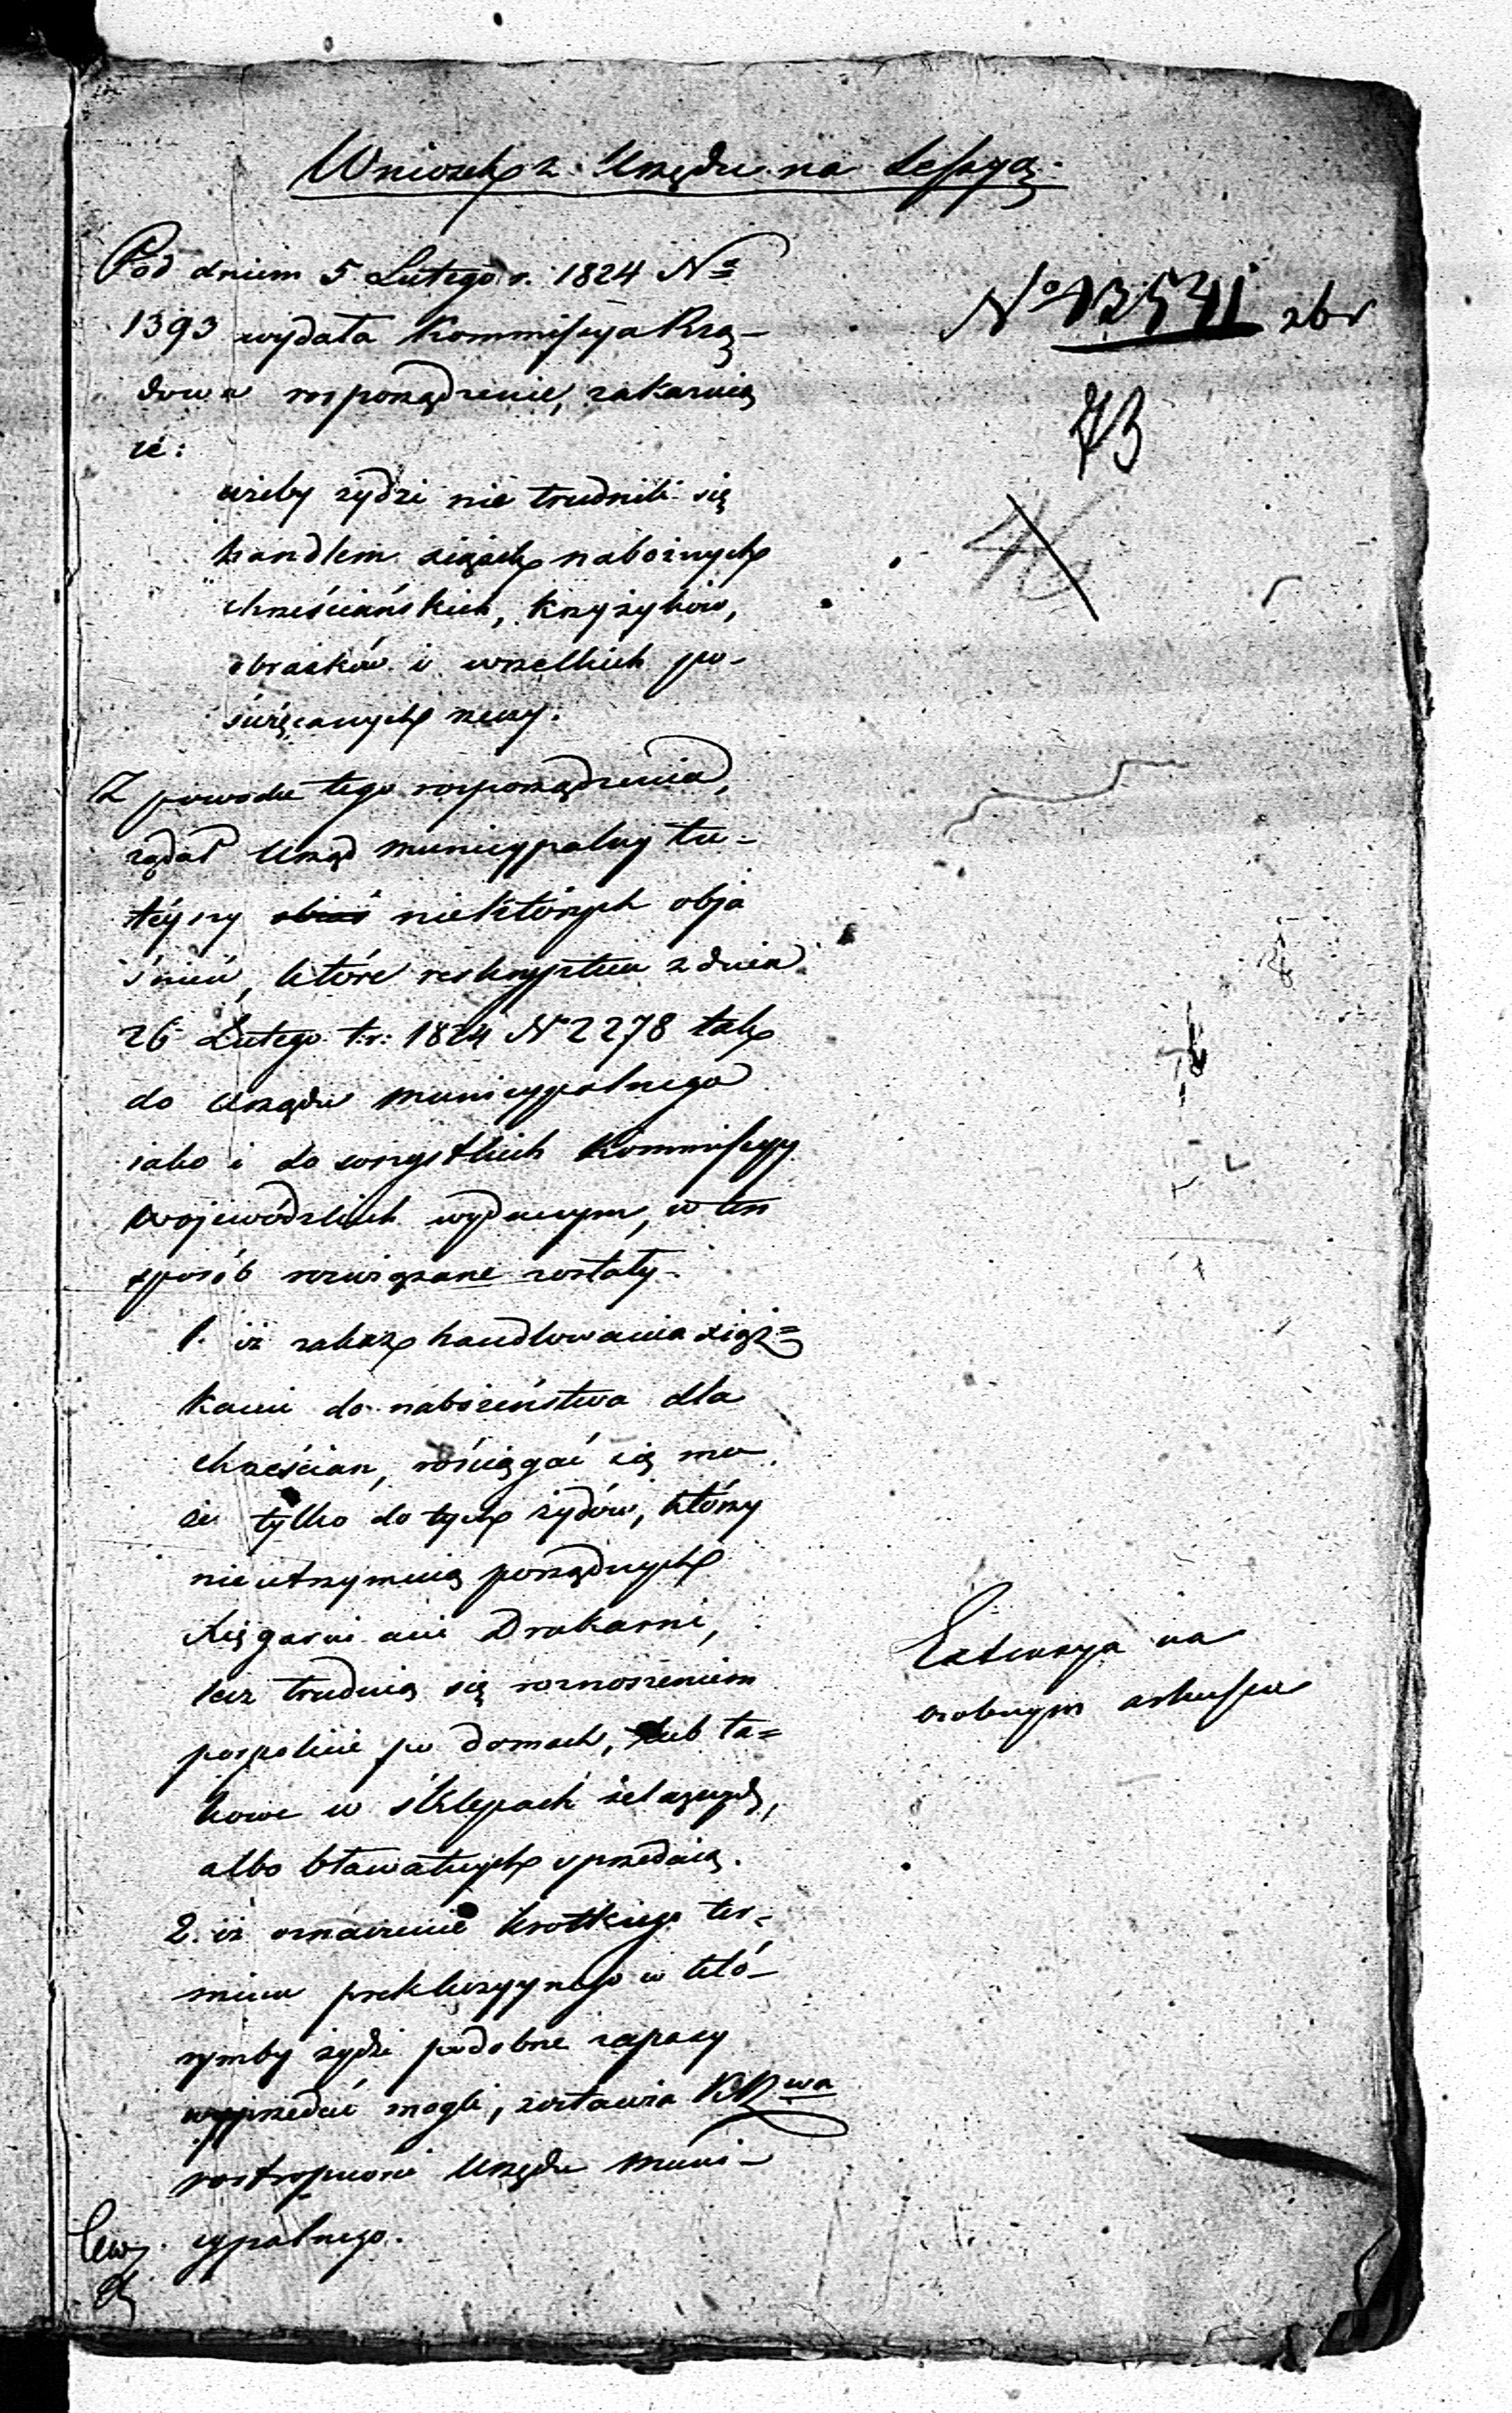 Wniosek z Urzędu na Sessyą.
Pod dniem 5 Lutego r. 1824 No
1393 wydała Kommissya Rzą-
dowa rosporządzenie, zakazuią
ce:
ażeby żydzi nie trudnili się
handlem xiążek nabożnych
chrześciańskich, krzyżyków,
obrazków i wszelkich po-
święcanych rzeczy.
Z powodu tego rosporządzenia,
żądał Urząd municypalny tu-
téyszy niektórych obja
śnień, które reskryptem z dnia
26 Lutego t.r: 1824 N 2278 tak
do Urzędu municypalnego
iako i do wszystkich Kommissyy
Wojewódzkich wydanym, w ten
sposób rozwiązane zostały.
1. iż zakaz handlowania xiąż=
kami do nabożeństwa dla
chrześcian, rościągać się mo
że tylko do tych żydów, którzy
nie utrzymuią porządnych
Xięgarni ani Drukarni,
lecz trudnią się roznoszeniem
pospolicie po domach, lub ta=
kowe w sklepach żelaznych,
albo bławatnych sprzedaią.
2. iż oznaczenie krotkiego ter-
minu prekluzyynego w któ-
rymby żydzi podobne zapasy
wyprzedać mogli, zostawia KRwa
rostropności Urzędu muni-
cypalnego.
No 13541 zbr
73
46
Extensya na
osobnym arkuszu